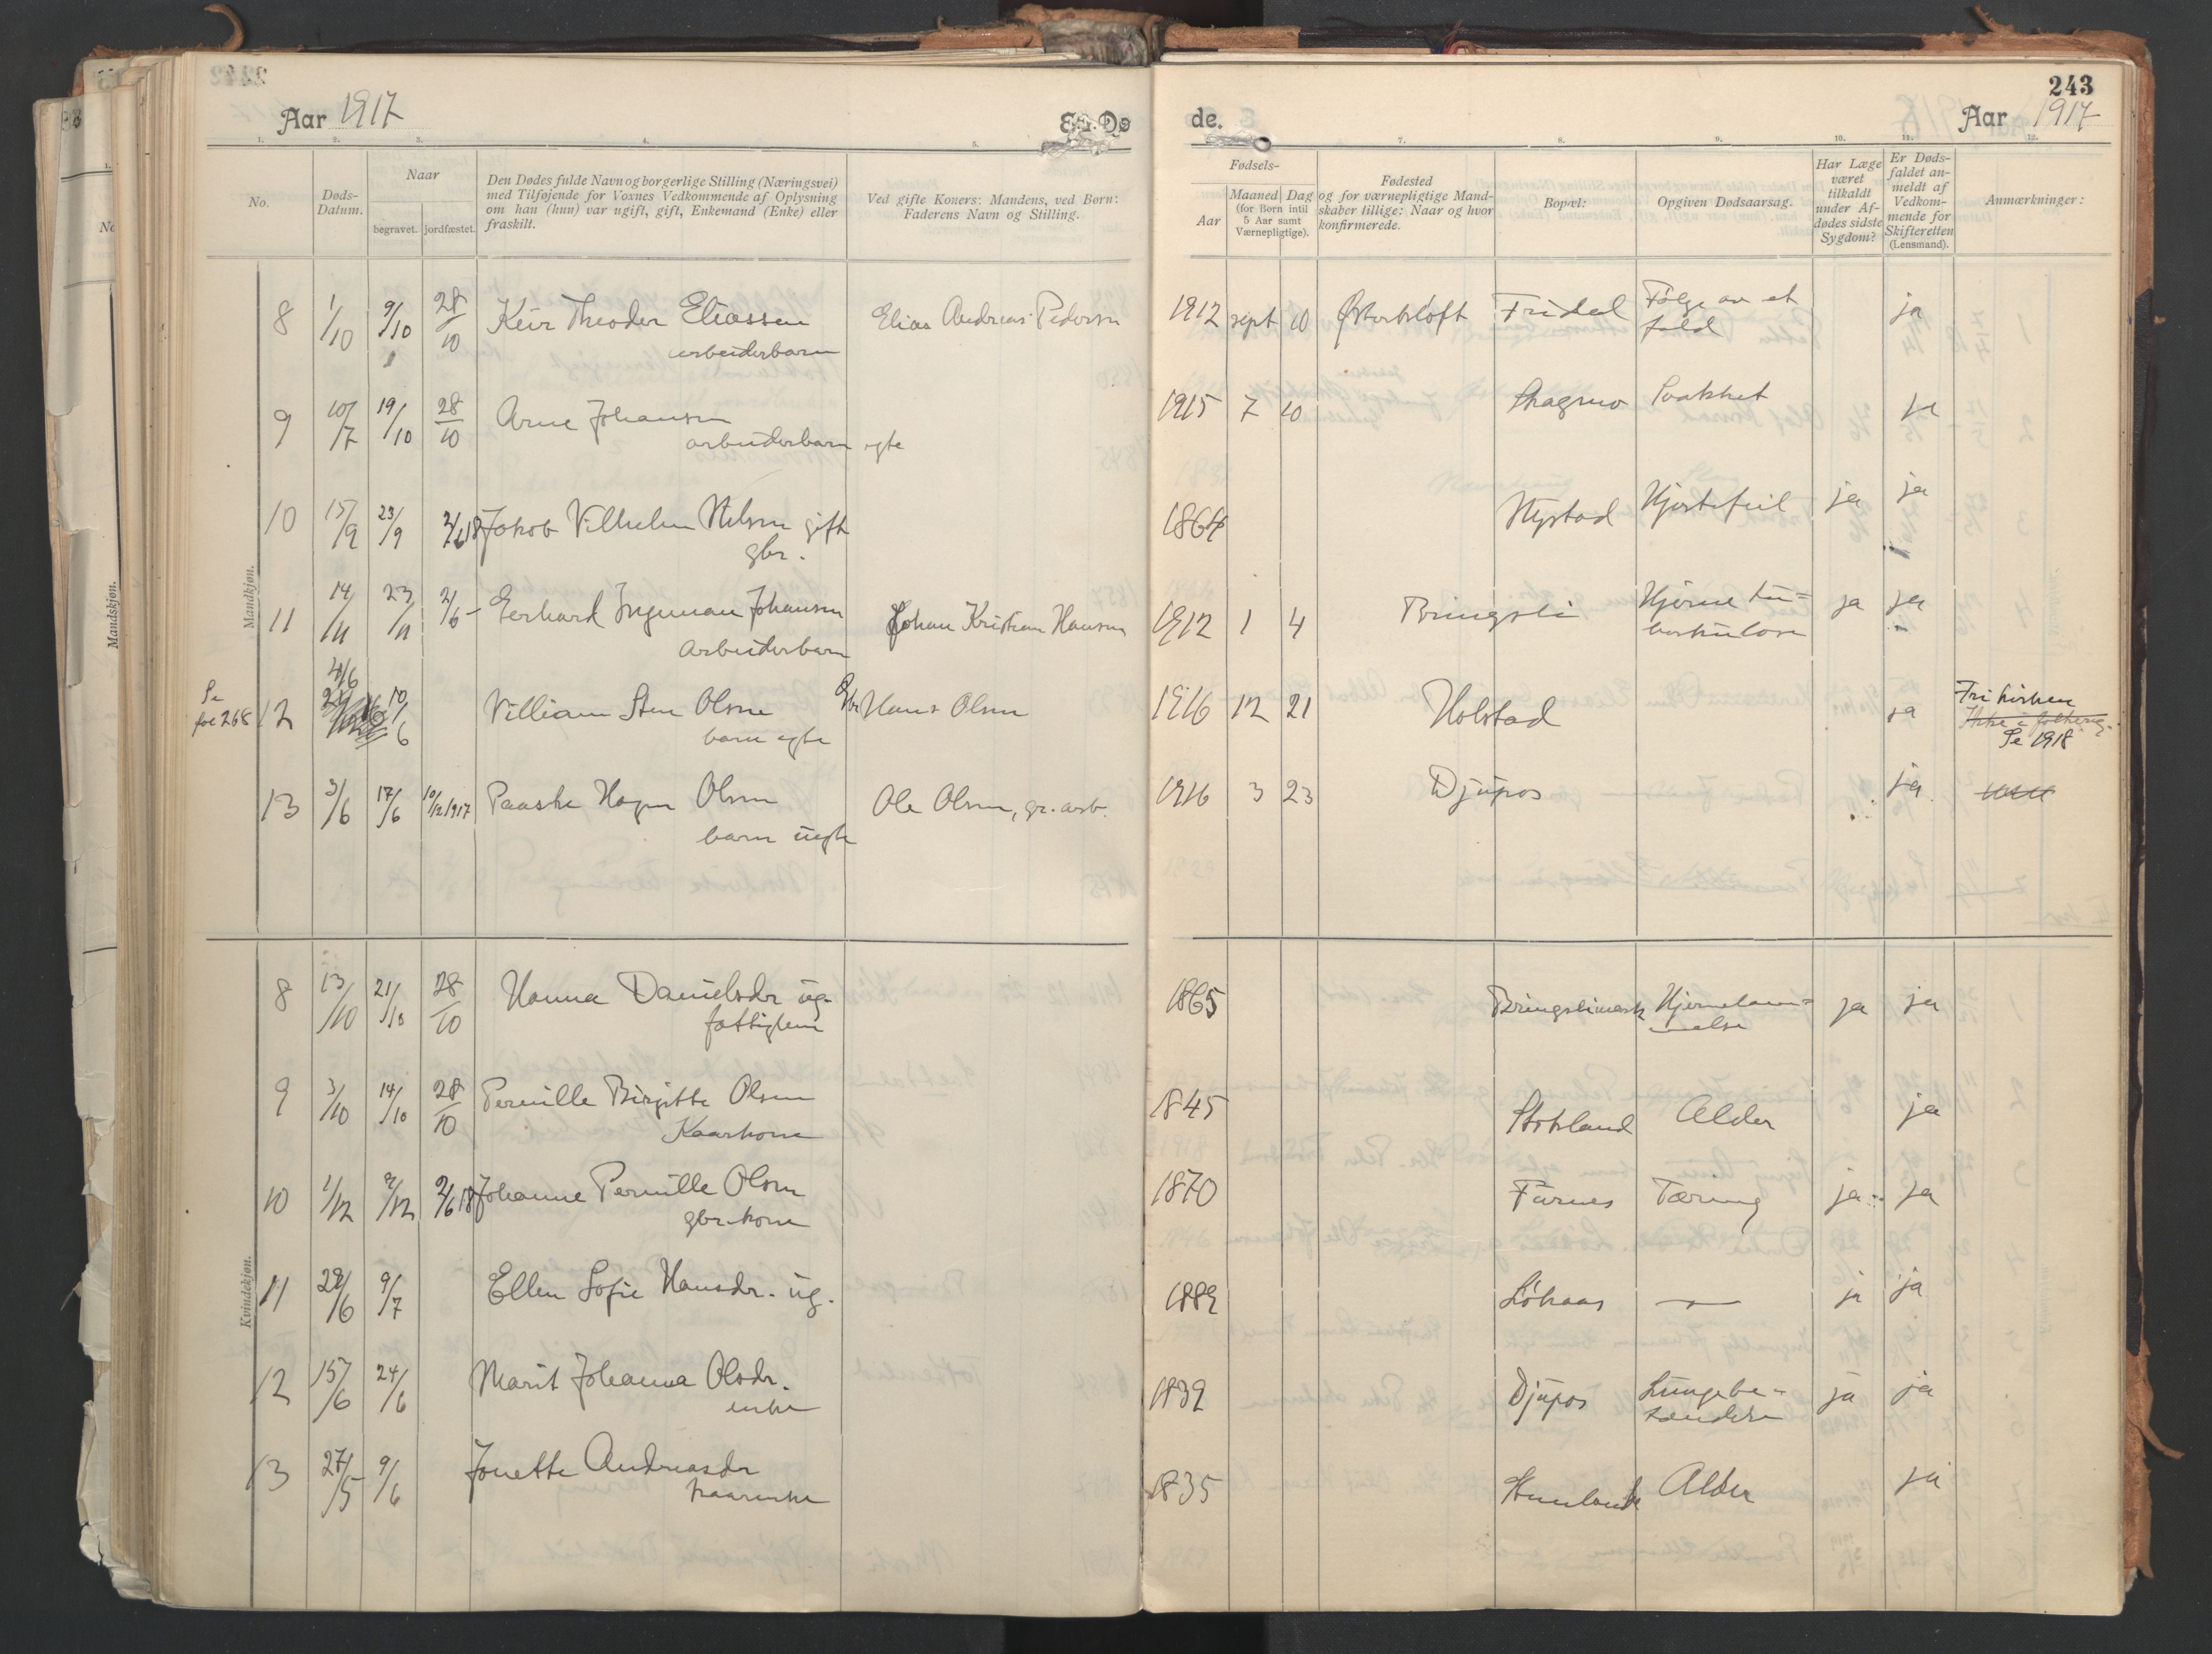 Aar 1917
Døde.
243
Aar 1917
1. 2. 3. 4. 5. 7. 8. 9. 10. 11. 12.
No.
Døds-
Datum.
Naar
begravet. jordfæstet.
Den Dødes fulde Navn og borgerlige Stilling (Næringsvei)
med Tilføjende for Voxnes Vedkommende af Oplysning
om han (hun) var ugift, gift, Enkemand (Enke) eller
fraskilt.
Ved gifte Koners: Mandens, ved Børn:
Faderens Navn og Stilling.
Fødsels-
Aar
Maaned Dag
(for Børn intil
5 Aar samt
Værnepligtige).
Fødested
og for værnepligtige Mand-
skaber tillige: Naar og hvor
konfirmerede.
Bopæl:
Opgiven Dødsaarsag.
Har Læge
været
tilkaldt
under Af-
dødes sidste
Sygdom?
Er Døds-
faldet an-
meldt af
Vedkom-
mende for
Skifteretten
(Lensmand).
Anmærkninger:
Mandkjøn.
8 1/10 9/10 28/10 Theodor Eliassen Elias Andreas Pedersen 1912 sept 10 Fridal Følge av et ja
arbeiderbarn fald
9 10/7 19/10 28/10 Arne Johansen 1915 7 10 Skagmo ja
arbeiderbarn egte
10 15/9 23/9 2/6 18 Jakob Vilhelm Nilsen gift 1864 Nystad Hjertefeil ja ja
gbr.
11 14/11 23/11 2/6 Gerhard Ingeman Johansen Johan Kristian Hansen 1912 1 4 Bringsli Hjerne tu= ja ja
arbeiderbarn berkulose
Se
fol 268 12 4/6 10/6 Villiam Sten Olsen Gbr Hans Olsen 1916 12 21 Holstad ja Fri kirken
barn egte Ikke i folkereg.
Se 1918
13 3/6 17/6 10/12 1917 Paaske Hagen Olsen Ole Olsen, gr. arb. 1916 3 23 Djupos ja
barn uegte
Kvindekjøn.
8 13/10 21/10 28/10 Hanna Danielsdr ug. 1865 Bringslimark Hjernelam= ja ja
fattiglem melse
9 3/10 14/10 28/10 Pernille Birgitte Olsen 1845 Stokland Alder ja
Kaarkone
10 1/12 9/12 2/6 18 Johanne Pernille Olsen 1870 Furnes Tæring ja ja
gbr. kone
11 29/6 9/7 Ellen Sofie Hansdr. ug. 1889 — ja ja
12 15/6 24/6 Marit Johanna Olsdr. 1839 Djupos Lungebe- ja ja
enke tændelse
13 27/5 9/6 Jonette Andreasdr 1835 Alder ja
kaarenke